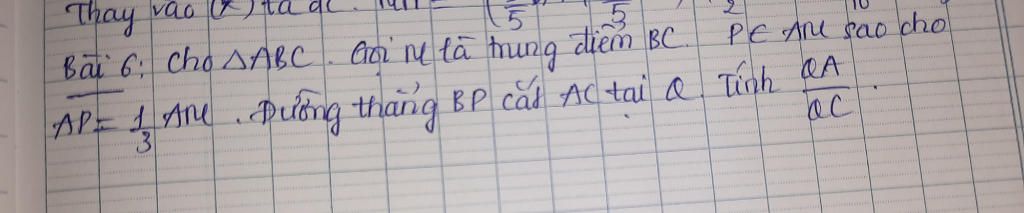 Thay vào (x) ta đc
5 3 2 10
Bài 6: Cho △ABC. Gọi M là trung điểm BC. P∈ AM sao cho
AP = 1/3 AM. Đường thẳng BP cắt AC tại Q. Tính QA/QC.